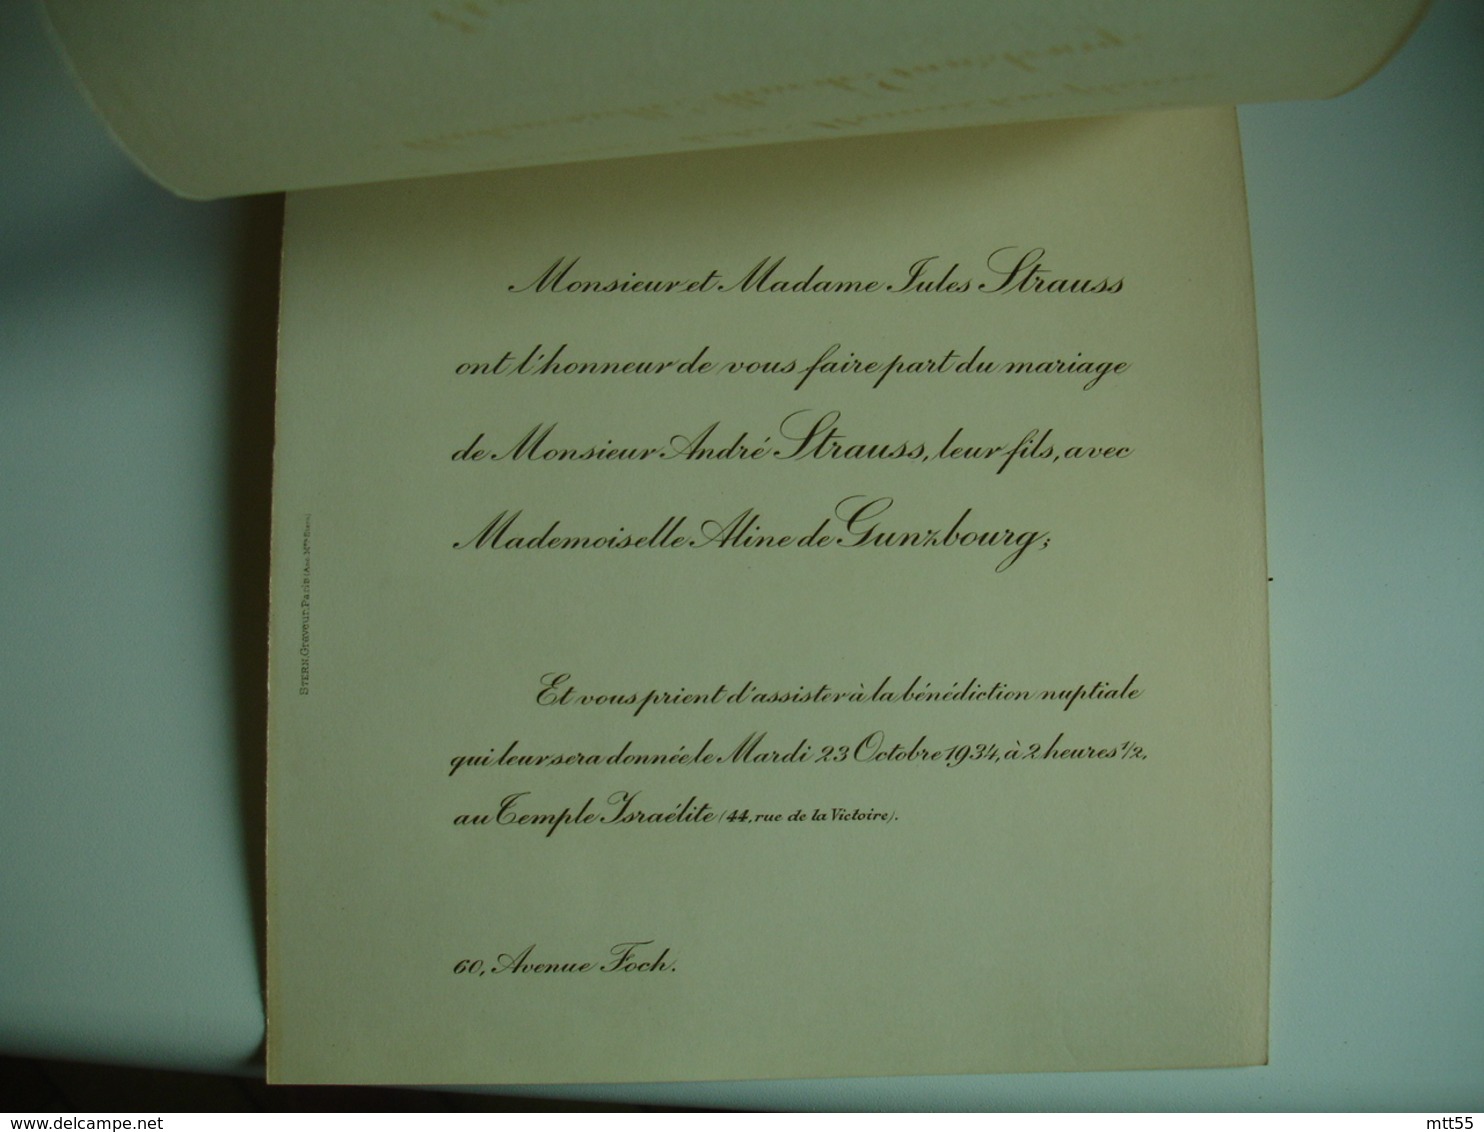 Monsieur et Madame Jules Strauss
ont l'honneur de vous faire part du mariage
de Monsieur André Strauss, leur fils, avec
Mademoiselle Aline de Gunzbourg;
Et vous prient d'assister à la bénédiction nuptiale
qui leur sera donnée le Mardi 23 Octobre 1934, à 2 heures 1/2,
au Temple Israélite (44, rue de la Victoire).
60, Avenue Foch.
STERN, Graveur, Paris
delcampe.net
mtt55